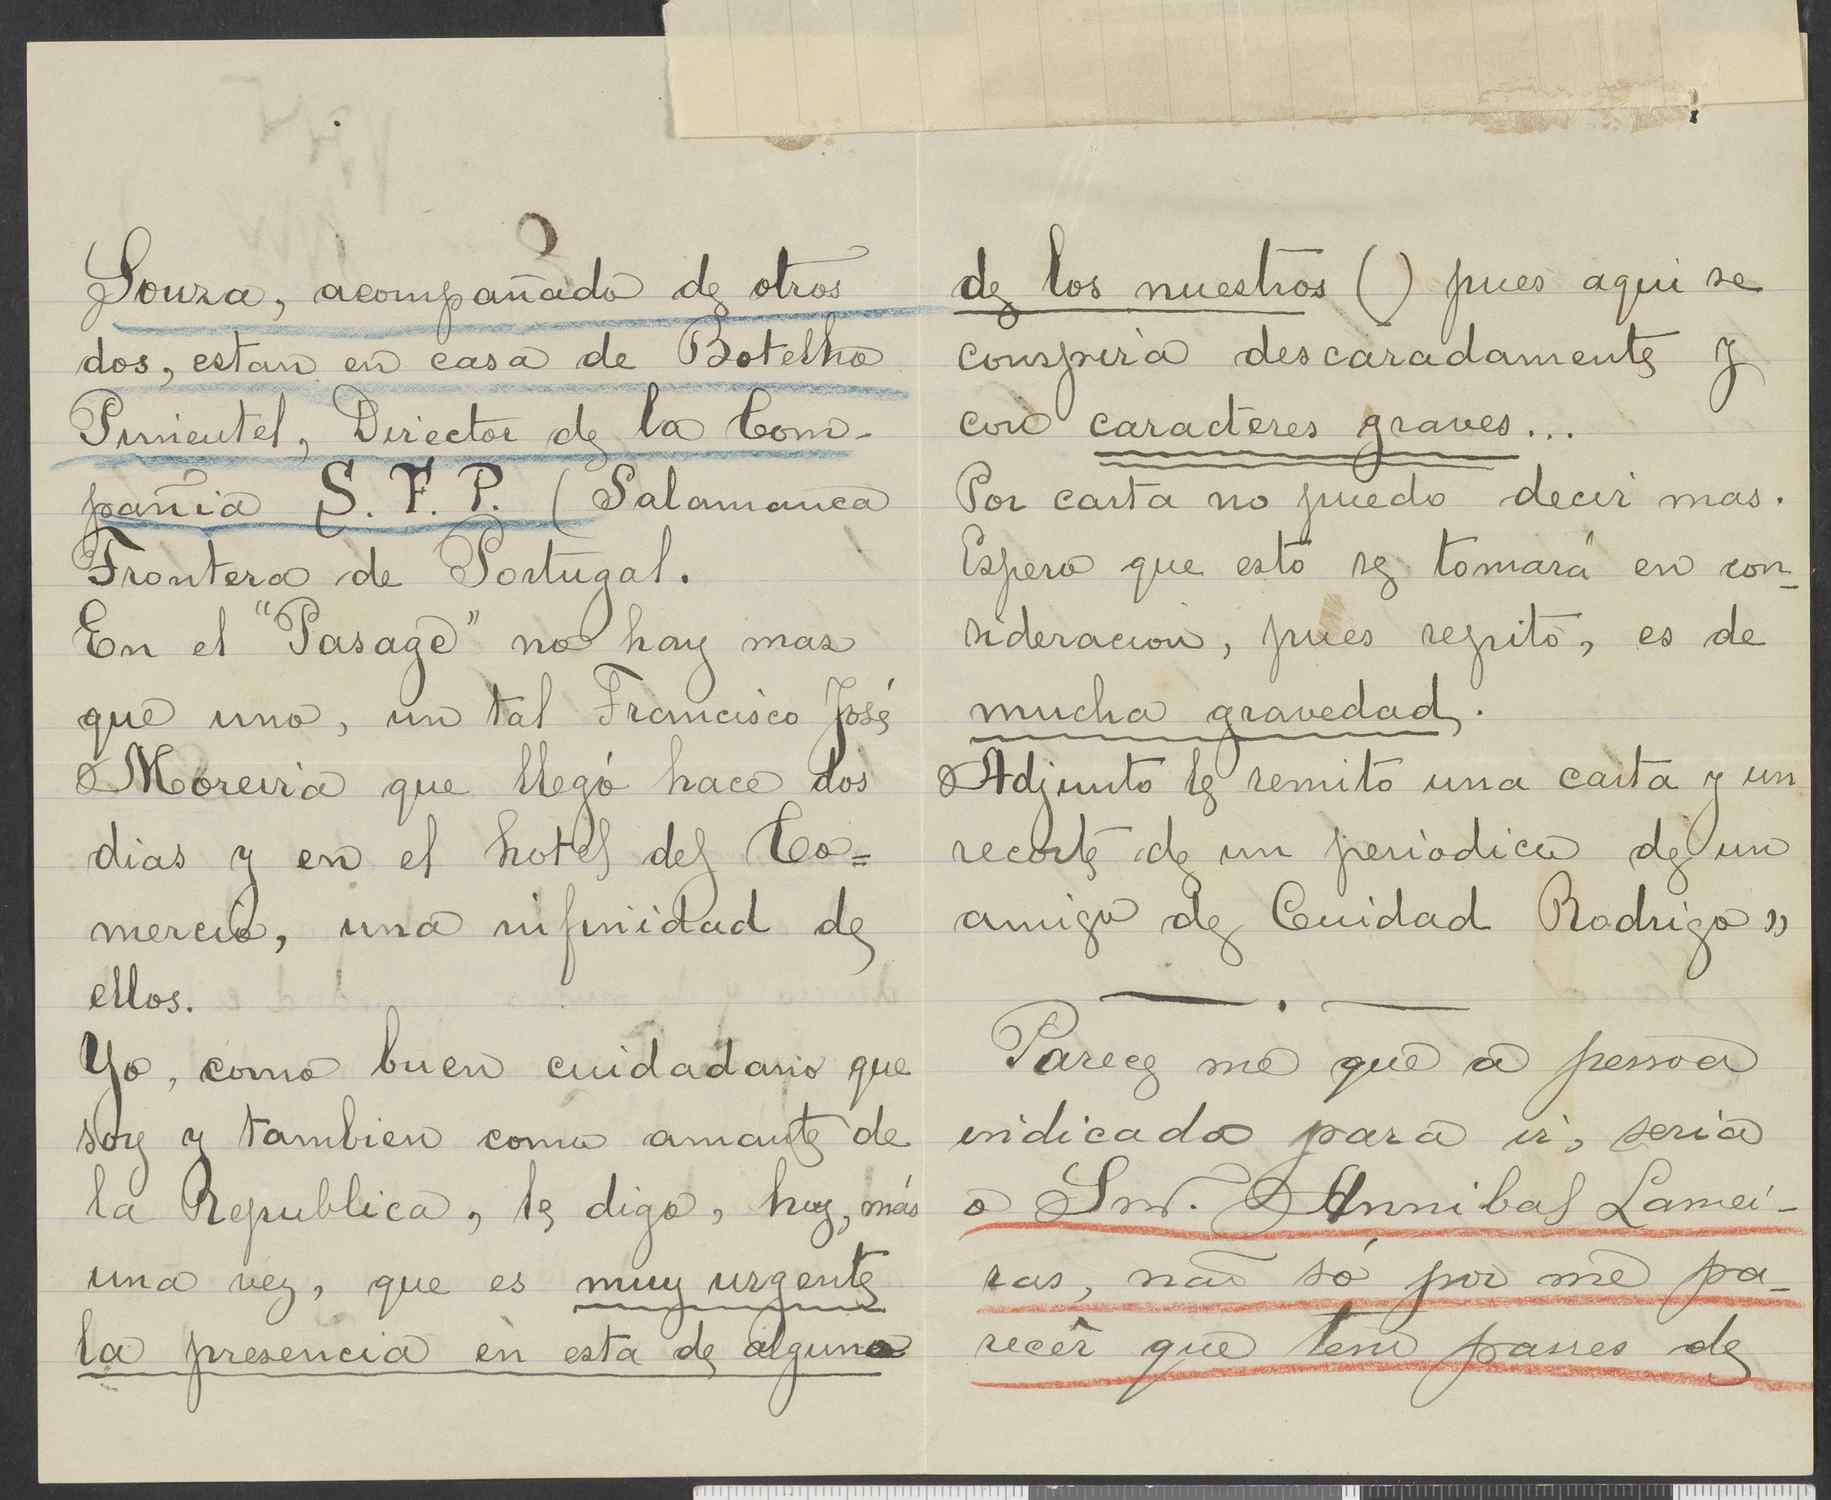 Souza, acompañado de otros
dos, estan en casa de Botelho
Pimentel, Director de la Com-
pañia S. F. P. (Salamanca
Frontera de Portugal.
En el "Pasage" no hay mas
que uno, un tal Francisco José
Moreira que llegó hace dos
dias y en el hotel del Co=
mercio, una infinidad de
ellos.
Yo, como buen cuidadano que
soy y tambien como amante de
la Republica, le digo, hoy, más
una vez, que es muy urgente
la presencia en esta de alguno
de los nuestros () pues aqui se
conspira descaradamente y
con caracteres graves...
Por carta no puedo decir mas.
Espero que esto se tomará en con-
sideracion, pues repito, es de
mucha gravedad.
Adjunto le remito una carta y un
recorte de un periodico de un
amigo de Cuidad Rodrigo»
Parece me que a pessoa
indicada para ir, seria
o Snr. Annibal Lamei-
ras, não só por me pa-
recêr que tem passes de